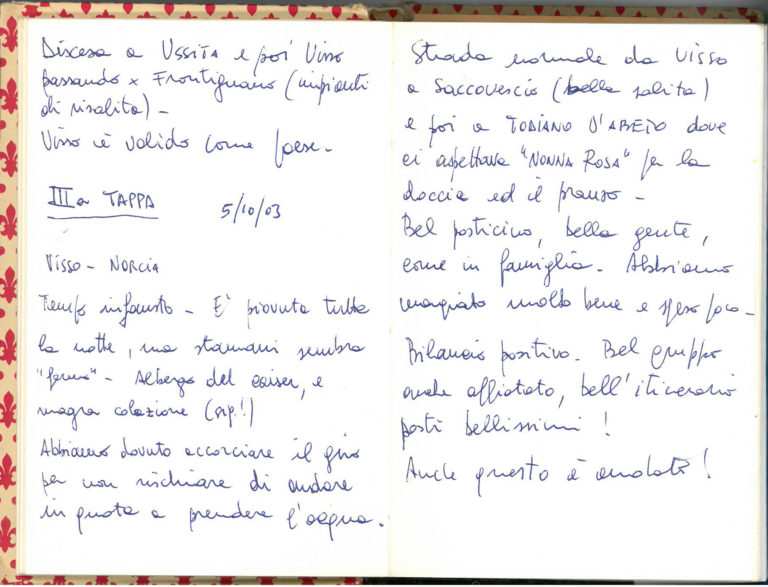 Discesa a USSITA e poi Visso
passando x Frontignano (impianti
di risalita) -
Visso è valido come paese -
IIIa TAPPA 5/10/03
VISSO - NORCIA
Tempo infausto - E' piovuto tutta
la notte, ma stamani sembra
"fermo" - Albergo del caiser, e
magra colazione (sip!)
Abbiamo dovuto accorciare il giro
per non rischiare di andare
in quota a prendere l'acqua.
Strada normale da VISSO
a SACCOVESCIO (bella salita)
e poi a TODIANO D'ABETO dove
ci aspettava "NONNA ROSA" per la
doccia ed il pranzo -
Bel posticino, bella gente,
come in famiglia - Abbiamo
mangiato molto bene e speso poco -
Bilancio positivo. Bel gruppo
anche affiatato, bell'itinerario
posti bellissimi!
Anche questo è andato!